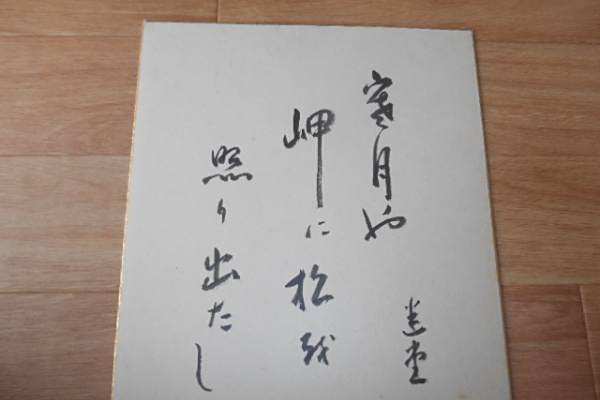 寒月や
岬に松を
照り出たし
堂